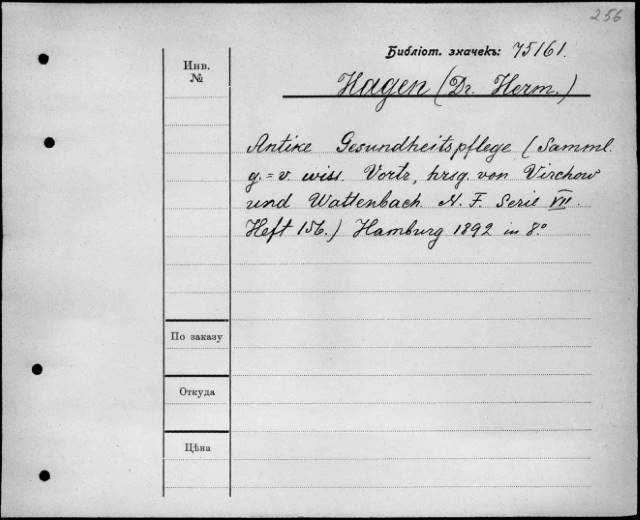 256
Библіот. значекъ: 75161.
Инв.
№
Hagen (Dr. Herm.)
Antike Gesundheitspflege (Samml.
g.=v. wiss. Vortr, hrsg. von Virchow
und Wattenbach. N. F. Serie VII.
Heft 156.) Hamburg 1892 in 8°
По заказу
Откуда
Цѣна